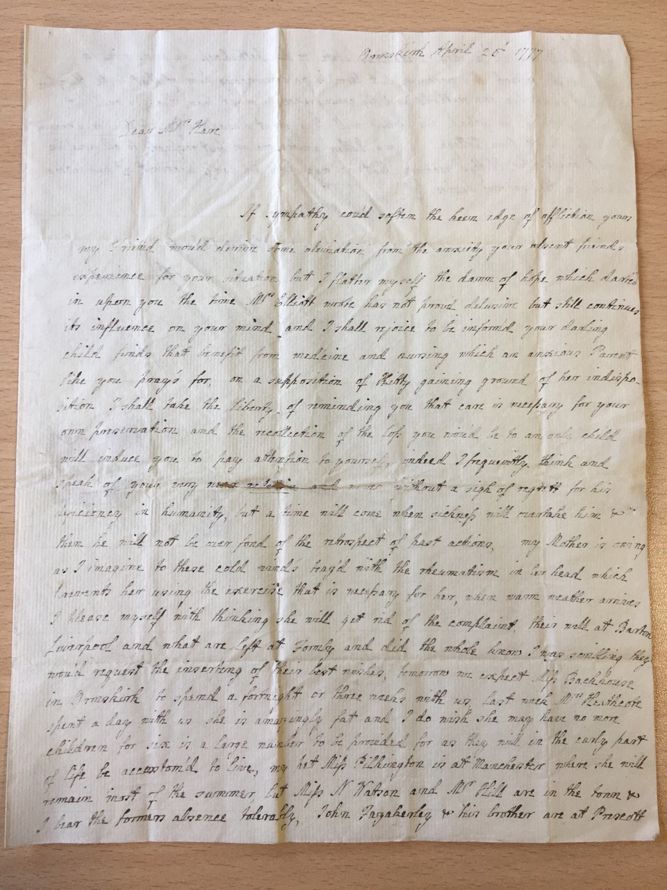 Ormskirk April 26t 1777
Dear Mrs Kent
If sympathy coud soften the keen edge of affliction yours
my Friend wou'd derive some aleviation from the anxiety your absent friends
experience for your situation but I flatter myself the dawn of hope which darted
in upon you the time Mrs Elliott wrote has not proud delusive but still continues
its influence on your mind and I shall rejoice to be informd your darling
child finds that benefit from medicine and nursing which an anxious Parent
like you pray's for, on a supposition of gaining ground of her indispo-
sition I shall take the liberty of reminding you that care is necessary for your
own preservation and the recollection of the loss you wou'd be to an only child
will induce you to pay attention to yourself, indeed I frequently think and
speak of your very near without a sigh of regrett for his
deficiency in humanity, but a time will come when sickness will overtake him &
then he will not be over fond of the retrospect of past actions, my Mother is owing
as I imagine to these cold winds with the rheumatism in her head which
prevents her using the exercise that is necessary for her, when warm weather arrives
I please myself with thinking she will get rid of the complaint, their will at Barton
Liverpool and what are left at Formby and did the whole know I was scribling they
wou'd request the inserting of their best wishes, tomorrow we expect Miss Backhouse
in Ormskirk to spend a fortnight or three weeks with us, last week Mrs Heathcote
spent a day with us she is amazingly fat and I do wish she may have no more
children for six is a large number to be provided for as they will in the early part
of life be accustom'd to live, my Miss Pilkington is at Manchester where she will
remain most of the summer but Miss N Watson and Mrs Hill are in the town &
I bear the formers absence tolerably, John Fazakerley & his brother are at Prescott